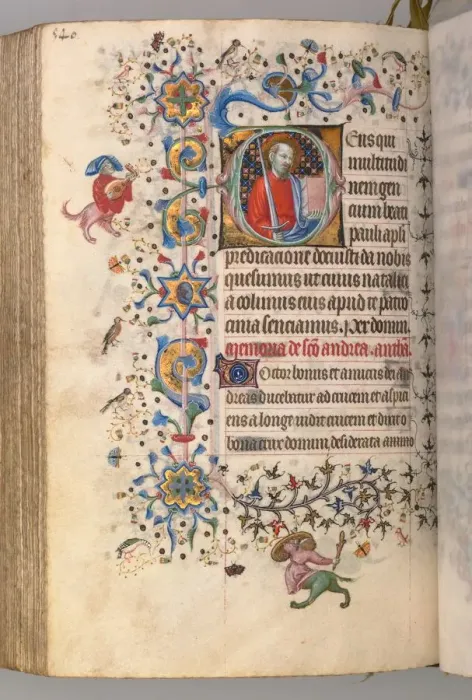 Deus qui
multitudi
nem gen
cium beati
pauli apli
predicacione docuisti da nobis
quesumus ut cuius natalici
a colimus eius apud te patro
cinia senciamus. Per domin.
memoria de sco andrea. antha.
Doctor bonus et amicus dei an
dreas ducebatur ad crucem et aspici
ens a longe vidit crucem et dixit o
bona crux domini desiderata animo